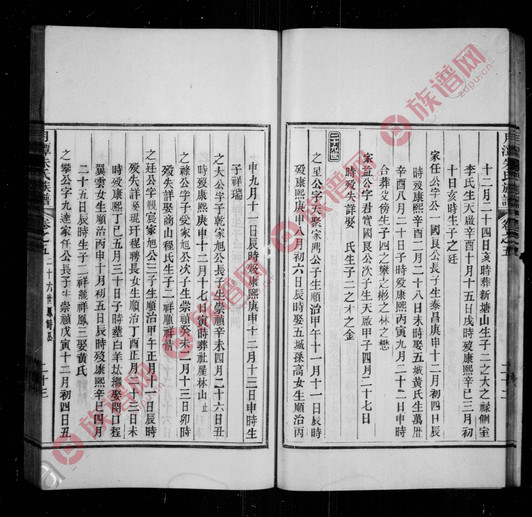 十二月二十四日亥時葬新塘山生子二之大之祿側室
李氏生天啟辛酉十月十五日戌時歿康熙辛巳三月初
十日亥時生子之廷
家任公字公一國良公長子生泰昌庚申十月初四日辰
時歿康熙辛酉二月二十八日未時娶五城黃氏生萬曆
辛酉八月二十日子時歿康熙丙寅九月二十二日申時
合葬父塋生子四之攀之彬之林之懋
家誼公字君實國良公次子生天啟甲子四月二十七日
時歿失詳娶 氏生子二之才之金
二十六世
之星公字天聚家興公子生順治甲午十一月十一日辰時
歿康熙 申八月初六日辰時娶五城孫高女生順治丙
申九月十一日辰時歿康熙庚申十二月十三日申時生
子祥瑞
之大公字子乾家旭公長子生崇禎辛未四月二十六日丑
時歿康熙庚申十二月十七日寅時葬社屋林山
之祿公字子受家旭公次子生崇禎癸未八月十三日卯時
歿失詳娶商山程氏生子二祥順祥
之廷公字 宸家旭公三子生順治甲午正月 日 時
歿失詳娶珉玕程 長女生順治丁酉正月二十三日未
時歿康熙丁巳五月三十日子時葬白羊 娶閔口程
翼雲女生順治丙申十月初五日辰時歿康熙辛巳四月
二十五日辰時生子二祥 祥鳳三娶黃氏
之攀公字九達家任公長子生崇禎戊寅十二月初四日丑
月潭朱氏族譜
卷之五
二十六世
二十三
族谱网
zupu.cn